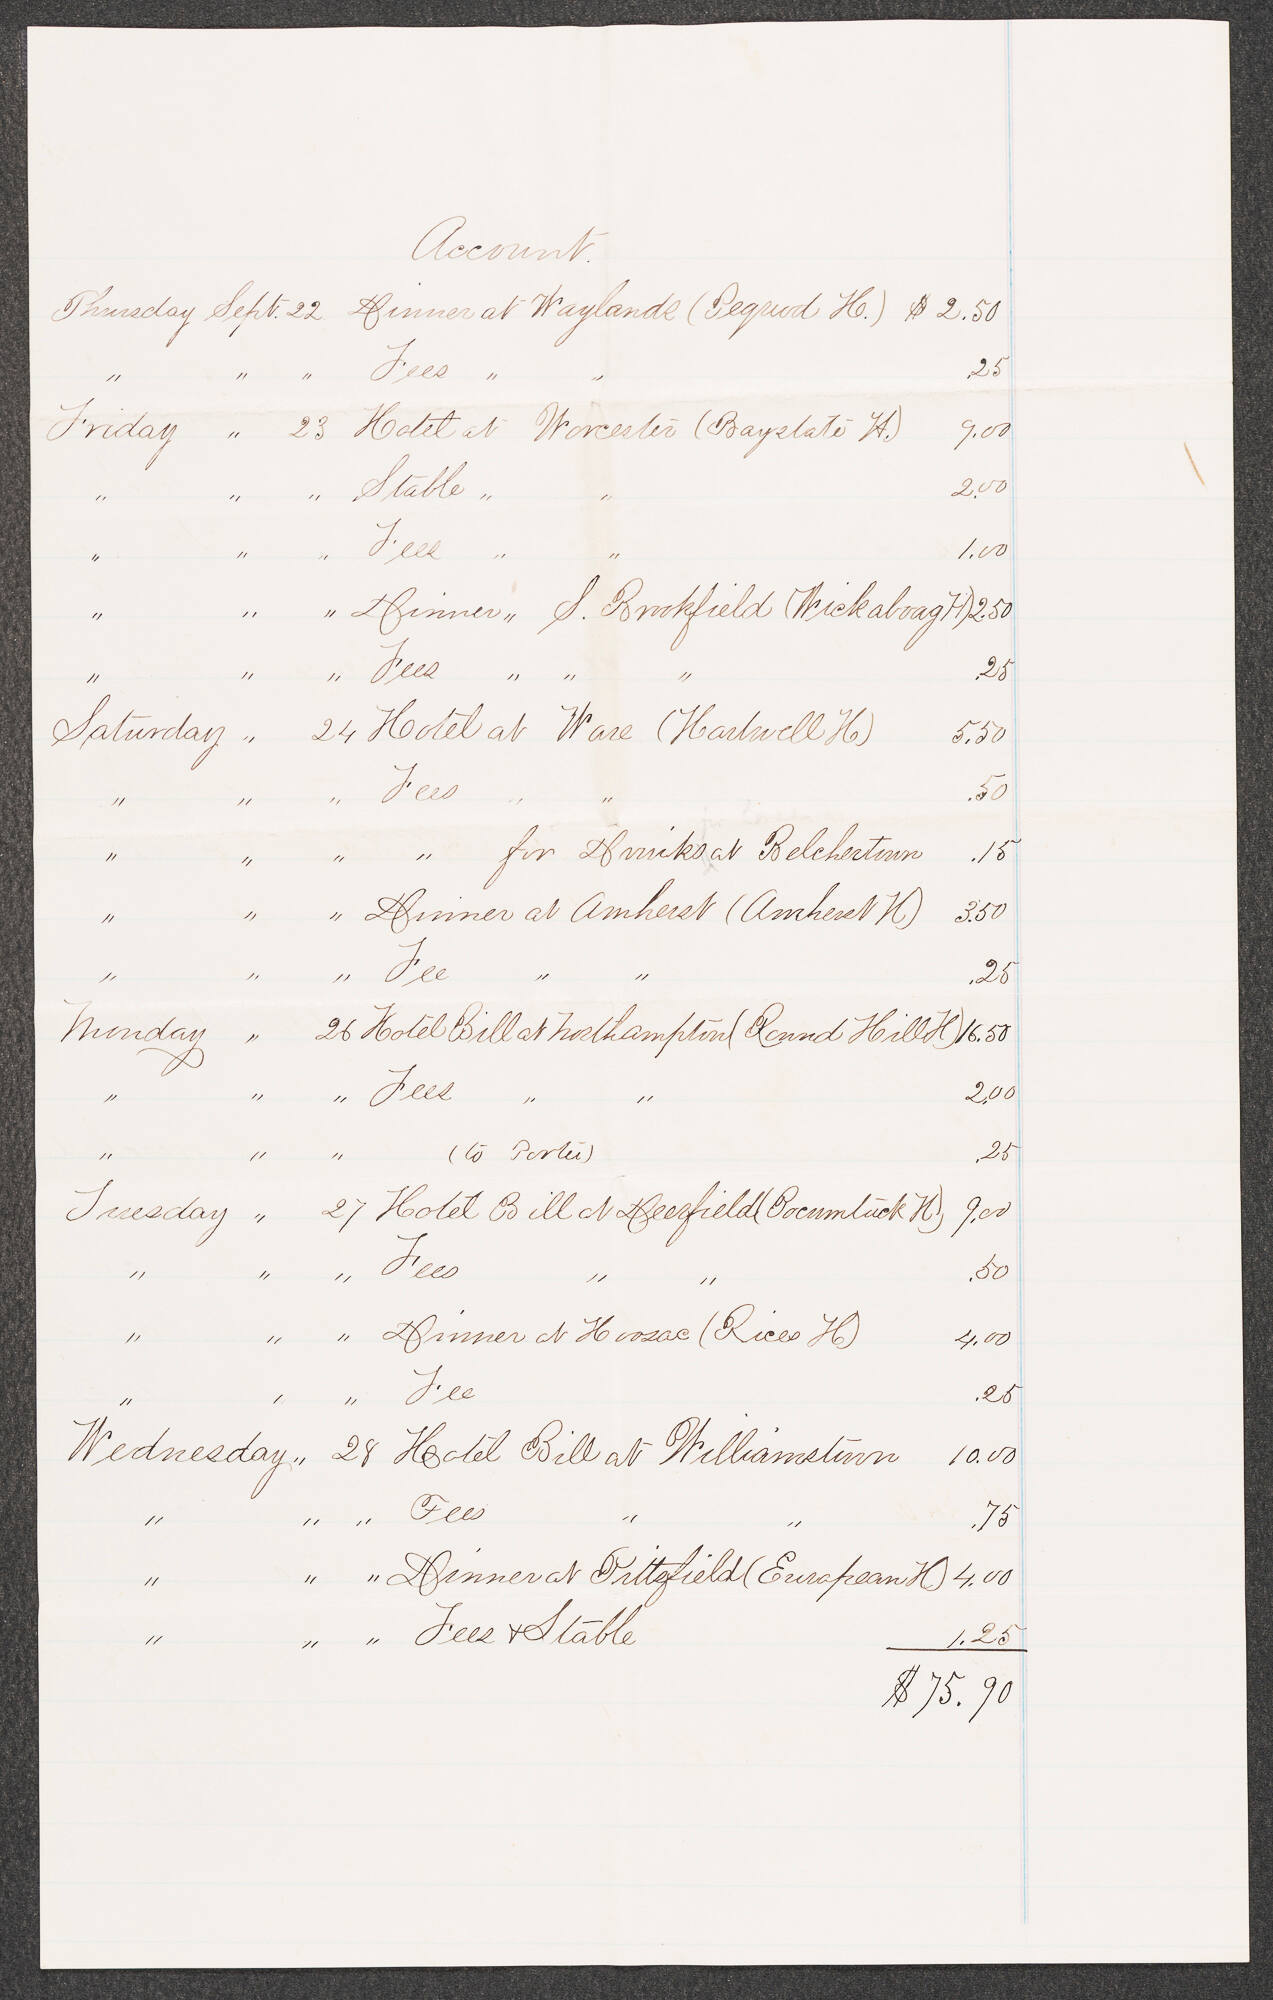 Account.
Thursday Sept. 22 Dinner at Waylande (Pequod H.) $ 2.50
" " " Fees " " .25
Friday " 23 Hotel at Worcester (Baystate H.) 9.00
" " " Stable " " 2.00
" " " Fees " " 1.00
" " " Dinner " S. Brookfield (Wickaboag H) 2.50
" " " Fees " " " .25
Saturday " 24 Hotel at Ware (Hartwell H) 5.50
" " " Fees " " .50
" " " " for Drinks at Belchertown .15
" " " Dinner at Amherst (Amherst H) 3.50
" " " Fee " " .25
Monday " 26 Hotel Bill at Northampton (Round Hill H) 16.50
" " " Fees " " 2.00
" " " (to Porter) .25
Tuesday " 27 Hotel Bill at Deerfield (Pocumtuck H) 9.00
" " " Fees " " .50
" " " Dinner at Hoosac (Rices H) 4.00
" " " Fee .25
Wednesday " 28 Hotel Bill at Williamstown 10.00
" " " Fees " " .75
" " " Dinner at Pittsfield (European H) 4.00
" " " Fees & Stable 1.25
$ 75.90